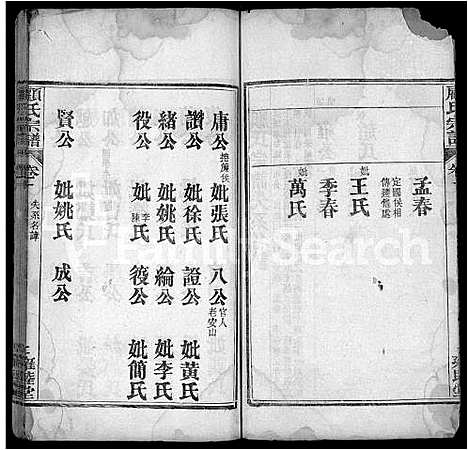 孟春
定國侯相
傳建他處
妣
王氏
季春
妣
萬氏
庸公
妣張氏
八公
官人
老安山
讚公
妣徐氏
證公
妣黃氏
緒公
妣姚氏
綸公
妣李氏
役公
妣
李
陳
氏
筱公
妣簡氏
賢公
妣姚氏
成公
顧氏宗譜
卷一
失系名諱
雍睦堂
FamilySearch